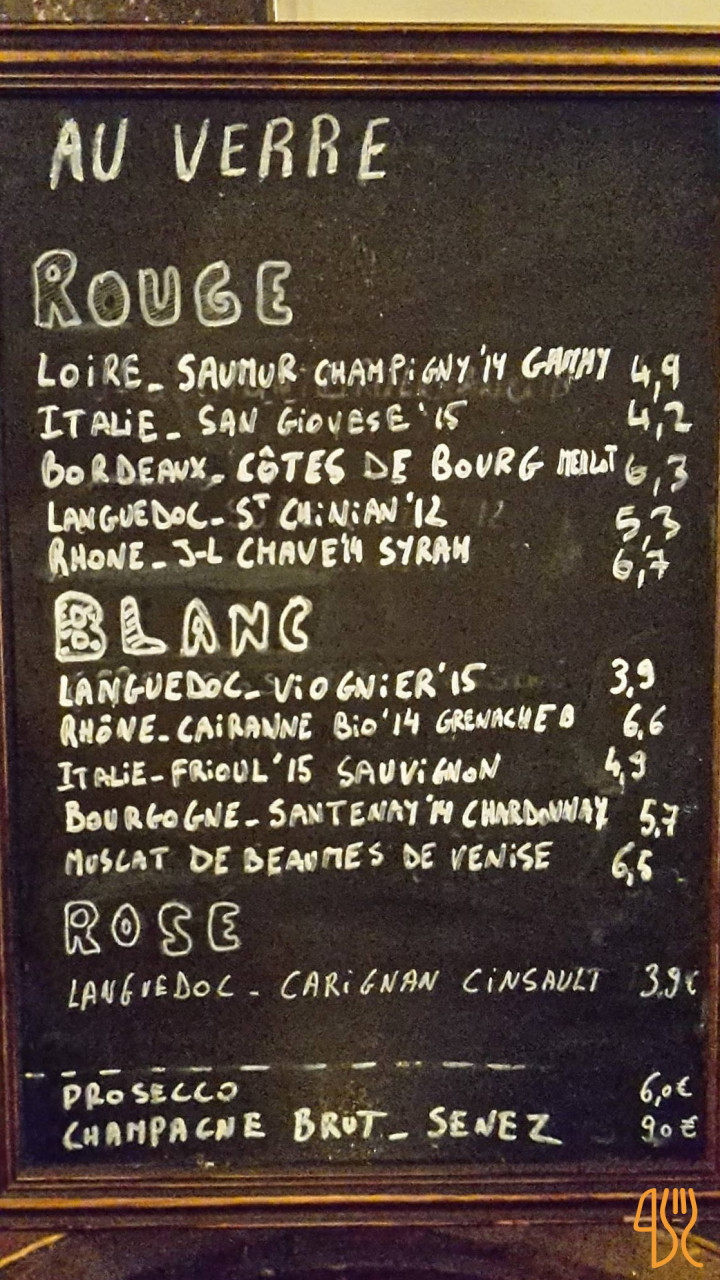 AU VERRE
ROUGE
LOIRE_ SAUMUR CHAMPIGNY'14 GAMAY 4,9
ITALIE_ SAN GIOVESE '15 4,2
BORDEAUX_ CÔTES DE BOURG MERLOT 6,3
LANGUEDOC_ ST CHINIAN '12 5,3
RHONE_ J-L CHAVE'14 SYRAH 6,7
BLANC
LANGUEDOC_ VIOGNIER'15 3,9
RHÔNE_ CAIRANNE Bio'14 GRENACHE B 6,6
ITALIE_ FRIOUL'15 SAUVIGNON 4,9
BOURGOGNE_ SANTENAY'14 CHARDONNAY 5,7
MUSCAT DE BEAUMES DE VENISE 6,5
ROSE
LANGUEDOC - CARIGNAN CINSAULT 3,9€
PROSECCO 6,0€
CHAMPAGNE BRUT_ SENEZ 9,0€